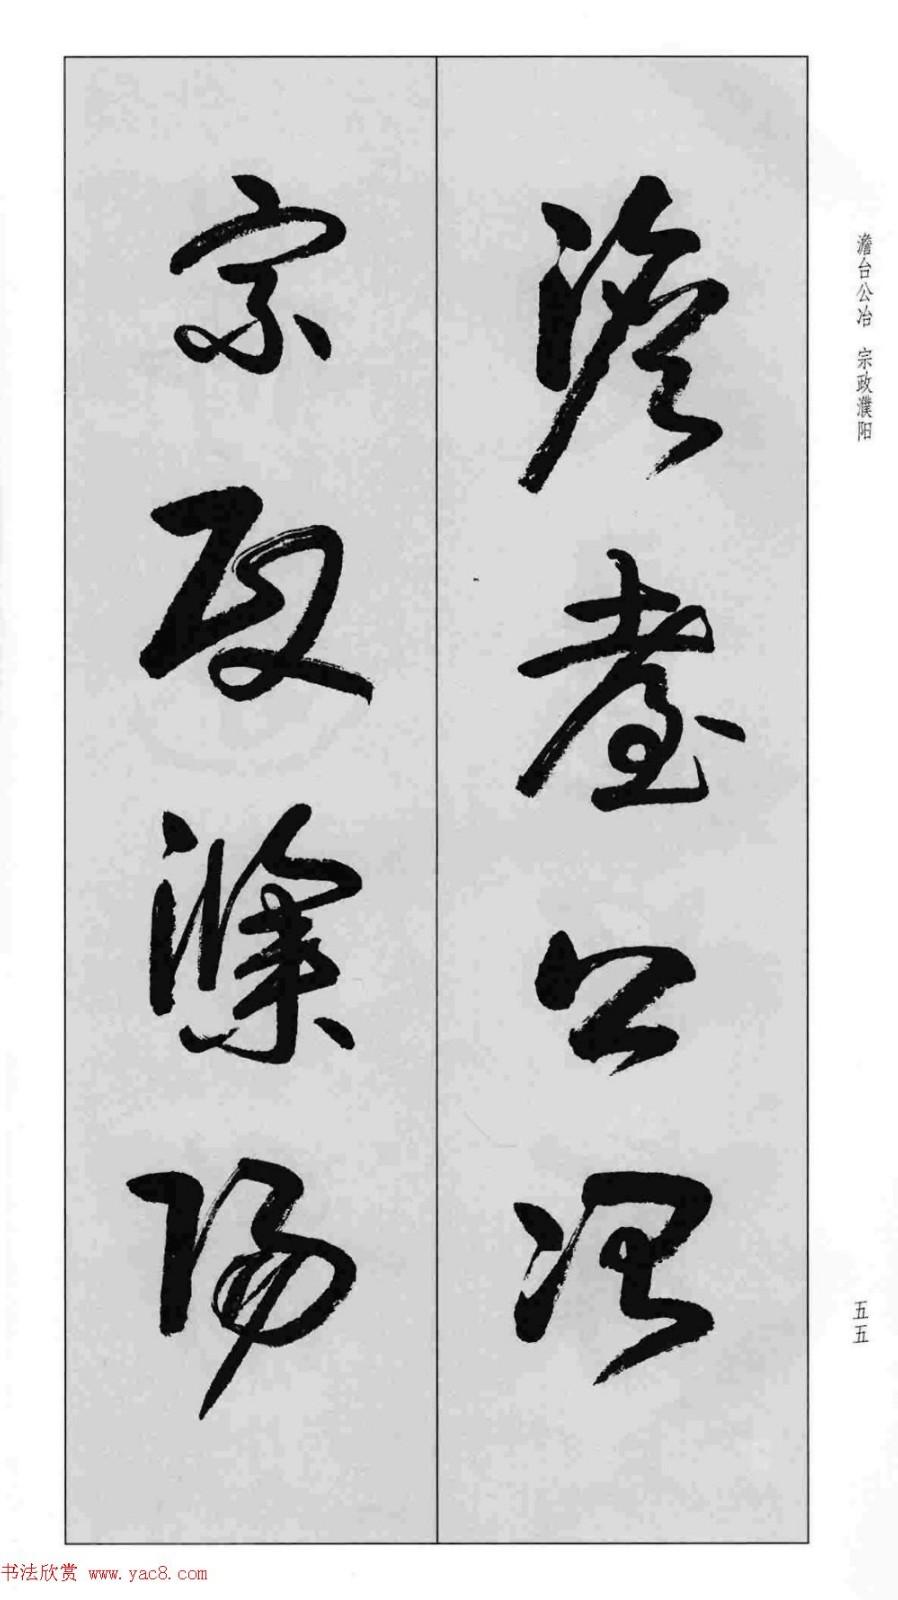 澹台公冶 宗政濮阳
澹臺公冶
宗政濮陽
五五
书法欣赏 www.yac8.com